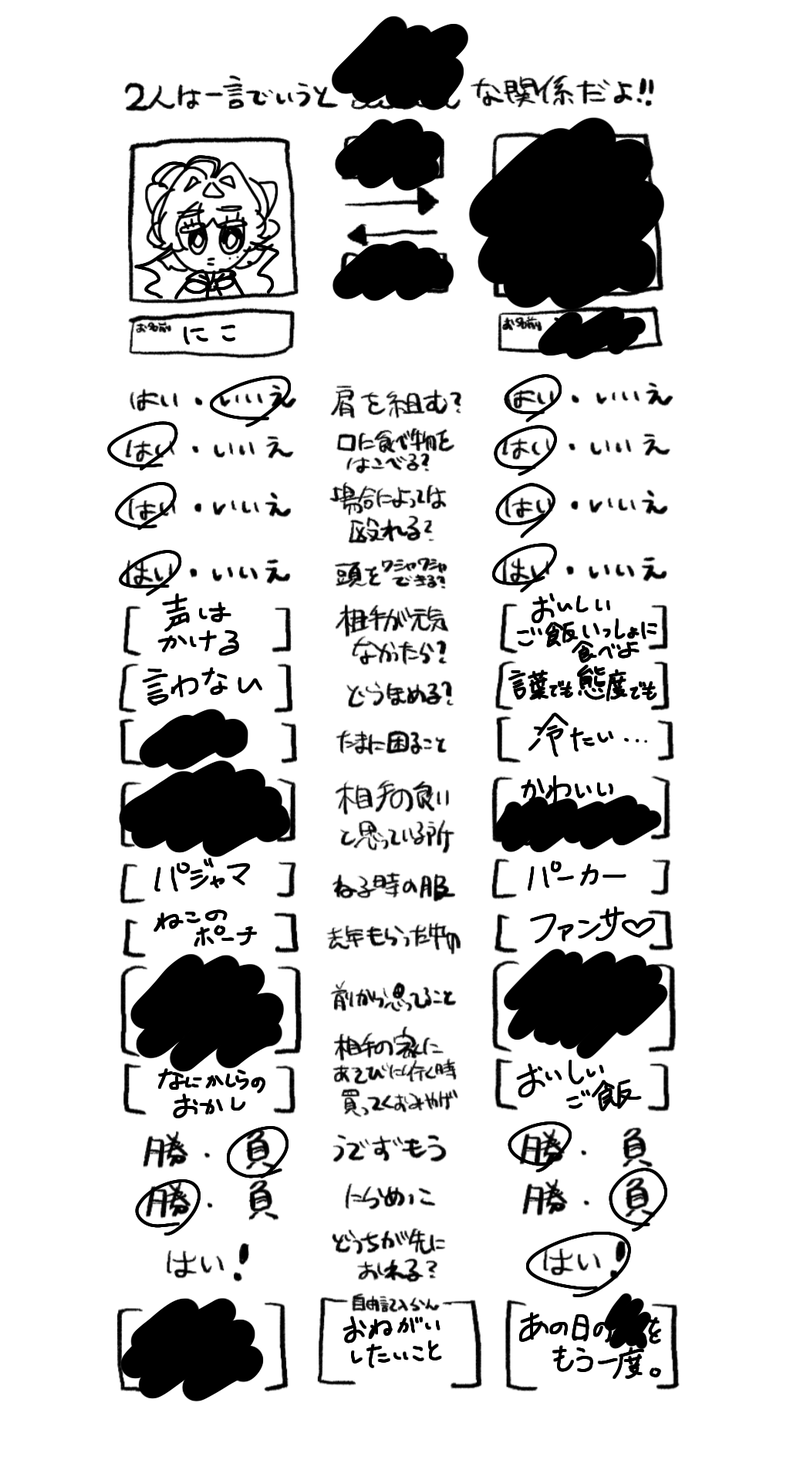 2人は一言でいうと な関係だよ!!
お名前 にこ
お名前
はい・いいえ 肩を組む? はい・いいえ
はい・いいえ 口に食べ物を はい・いいえ
はこべる?
はい・いいえ 場合によっては はい・いいえ
殴れる?
はい・いいえ 頭をワシャワシャ はい・いいえ
できる?
声は 相手が元気 おいしい
かける なかったら? ご飯いっしょに
食べよ
言わない どうほめる? 言葉でも態度でも
たまに困ること 冷たい…
相手の良い かわいい
と思っている所
パジャマ ねる時の服 パーカー
ねこの 去年もらった物 ファンサ♡
ポーチ
前から思ってること
相手の家に
なにかしらの あそびに行く時 おいしい
おかし 買ってくおみやげ ご飯
勝・負 うでずもう 勝・負
勝・負 にらめっこ 勝・負
はい! どっちが先に はい!
おれる?
自由記入らん
おねがい あの日の を
したいこと もう一度。